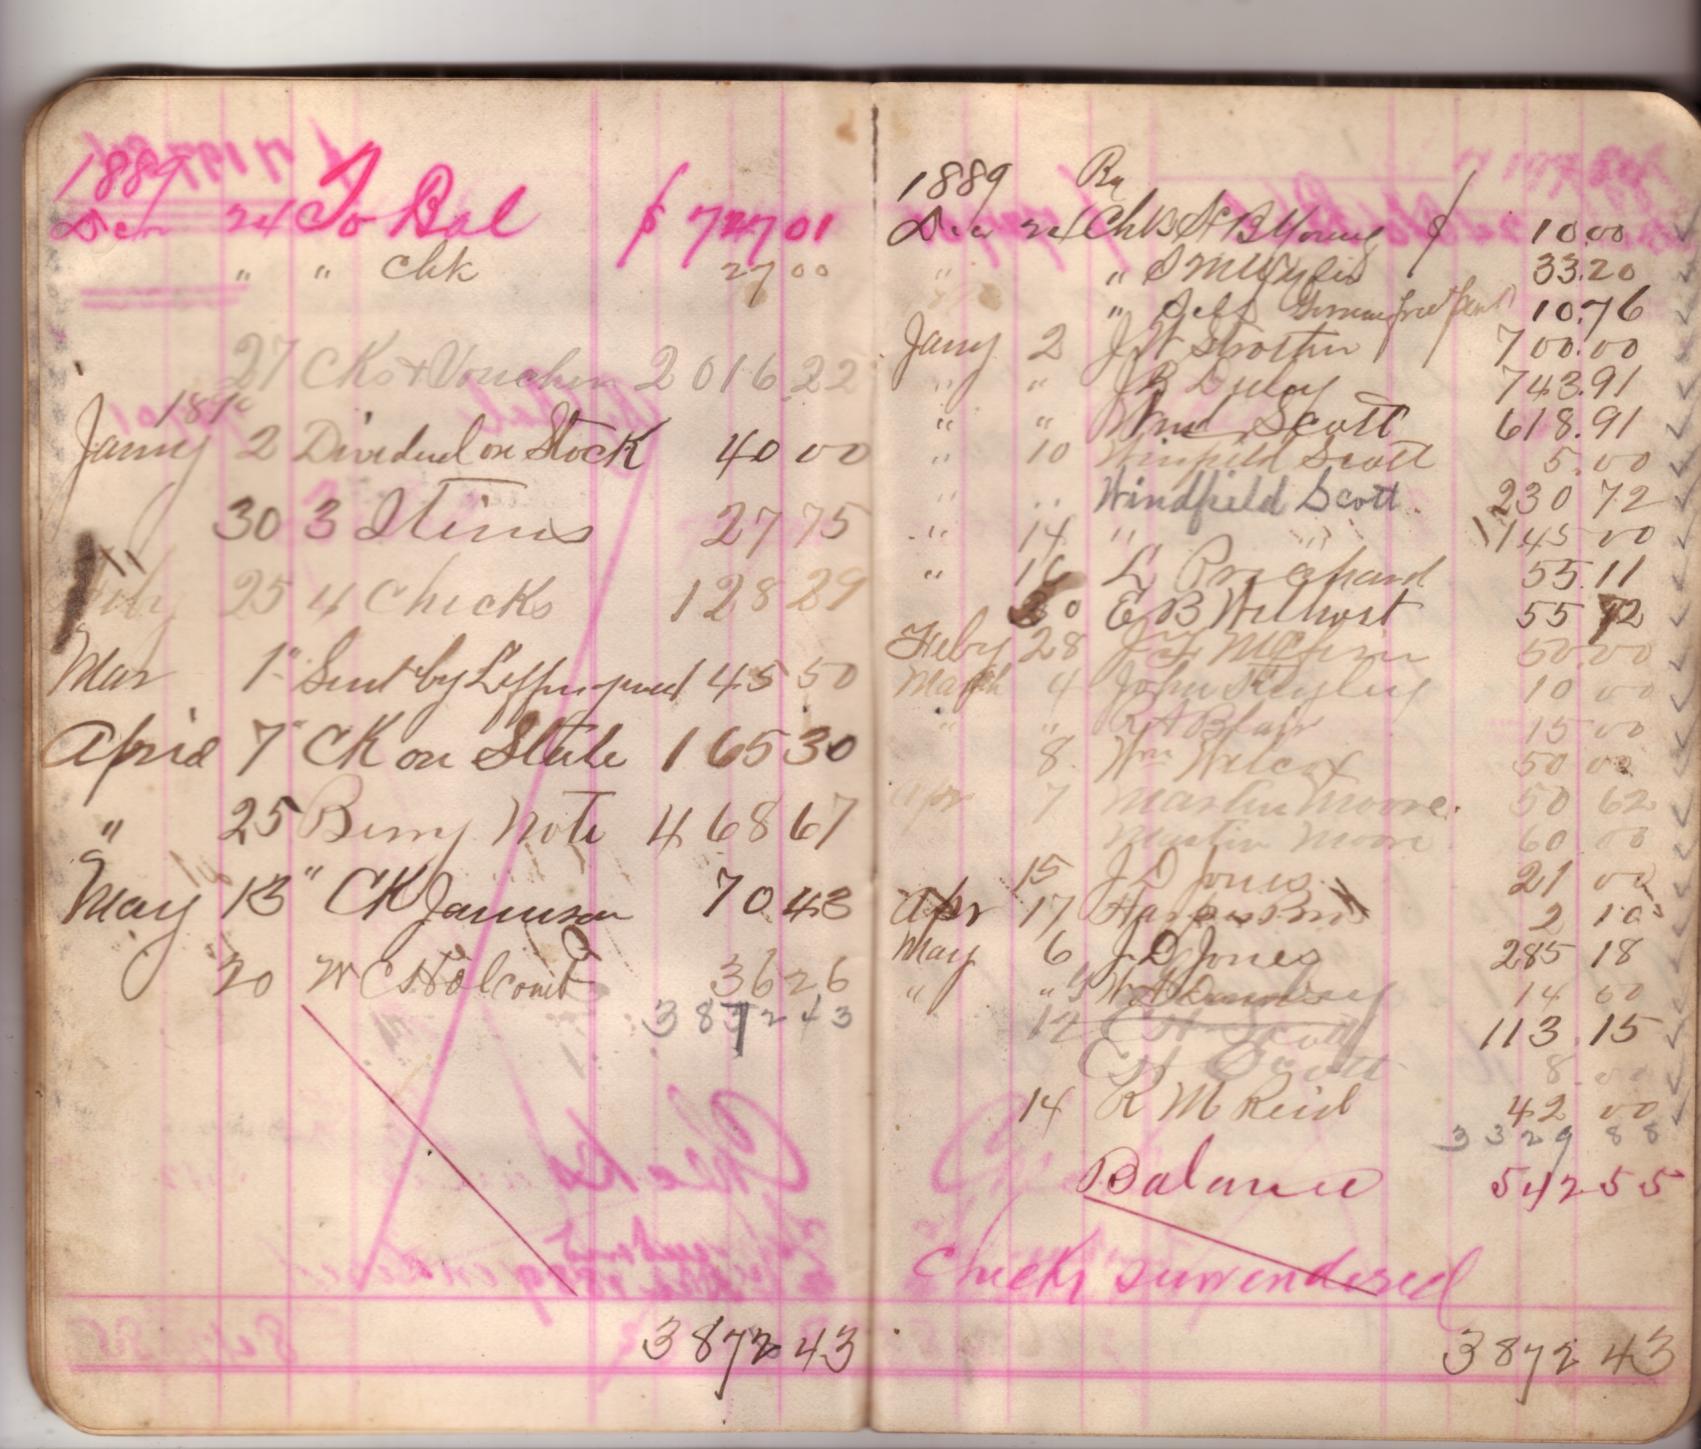 1889
Dec 24 To Bal $ 727 01
" " Chk 27 00
27 Cks & Voucher 2016 22
1890
Jany 2 Dividend on Stock 40 00
30 3 Items 27 75
Feby 25 4 Checks 128 29
Mar 1" Sent by 45 50
April 7" CK on State 165 30
" 25 Berry Note 468 67
May 13" CK Jamison 70 43
20 W C Holcomb 36 26
3872 43
3872 43
1889
Dec 24 Chks B Young $ 10.00
" 33.20
" Self 10.76
Jany 2 J W Strother 700.00
" " J B Duley 743.91
" " Wind Scott 618.91
" 10 Winfield Scott 5.00
" " Windfield Scott 230 72
" 14 " " 145 00
" 16 L Prichard 55.11
20 E B Wilhort 55 72
Feby 28 50.00
March 4 John 10 00
" " R A Blair 15 00
8 Wm Wilcox 50 00
Apr 7 Martin Moore 50 62
Martin Moore 60 00
15 J D Jones 21 00
Apr 17 2 10
May 6 J D Jones 285 18
" " 14 00
12 E H Scott 113.15
E H Scott 8.00
14 R M Reid 42 00
3329 88
Balance 542 55
Checks surrendered
3872 43